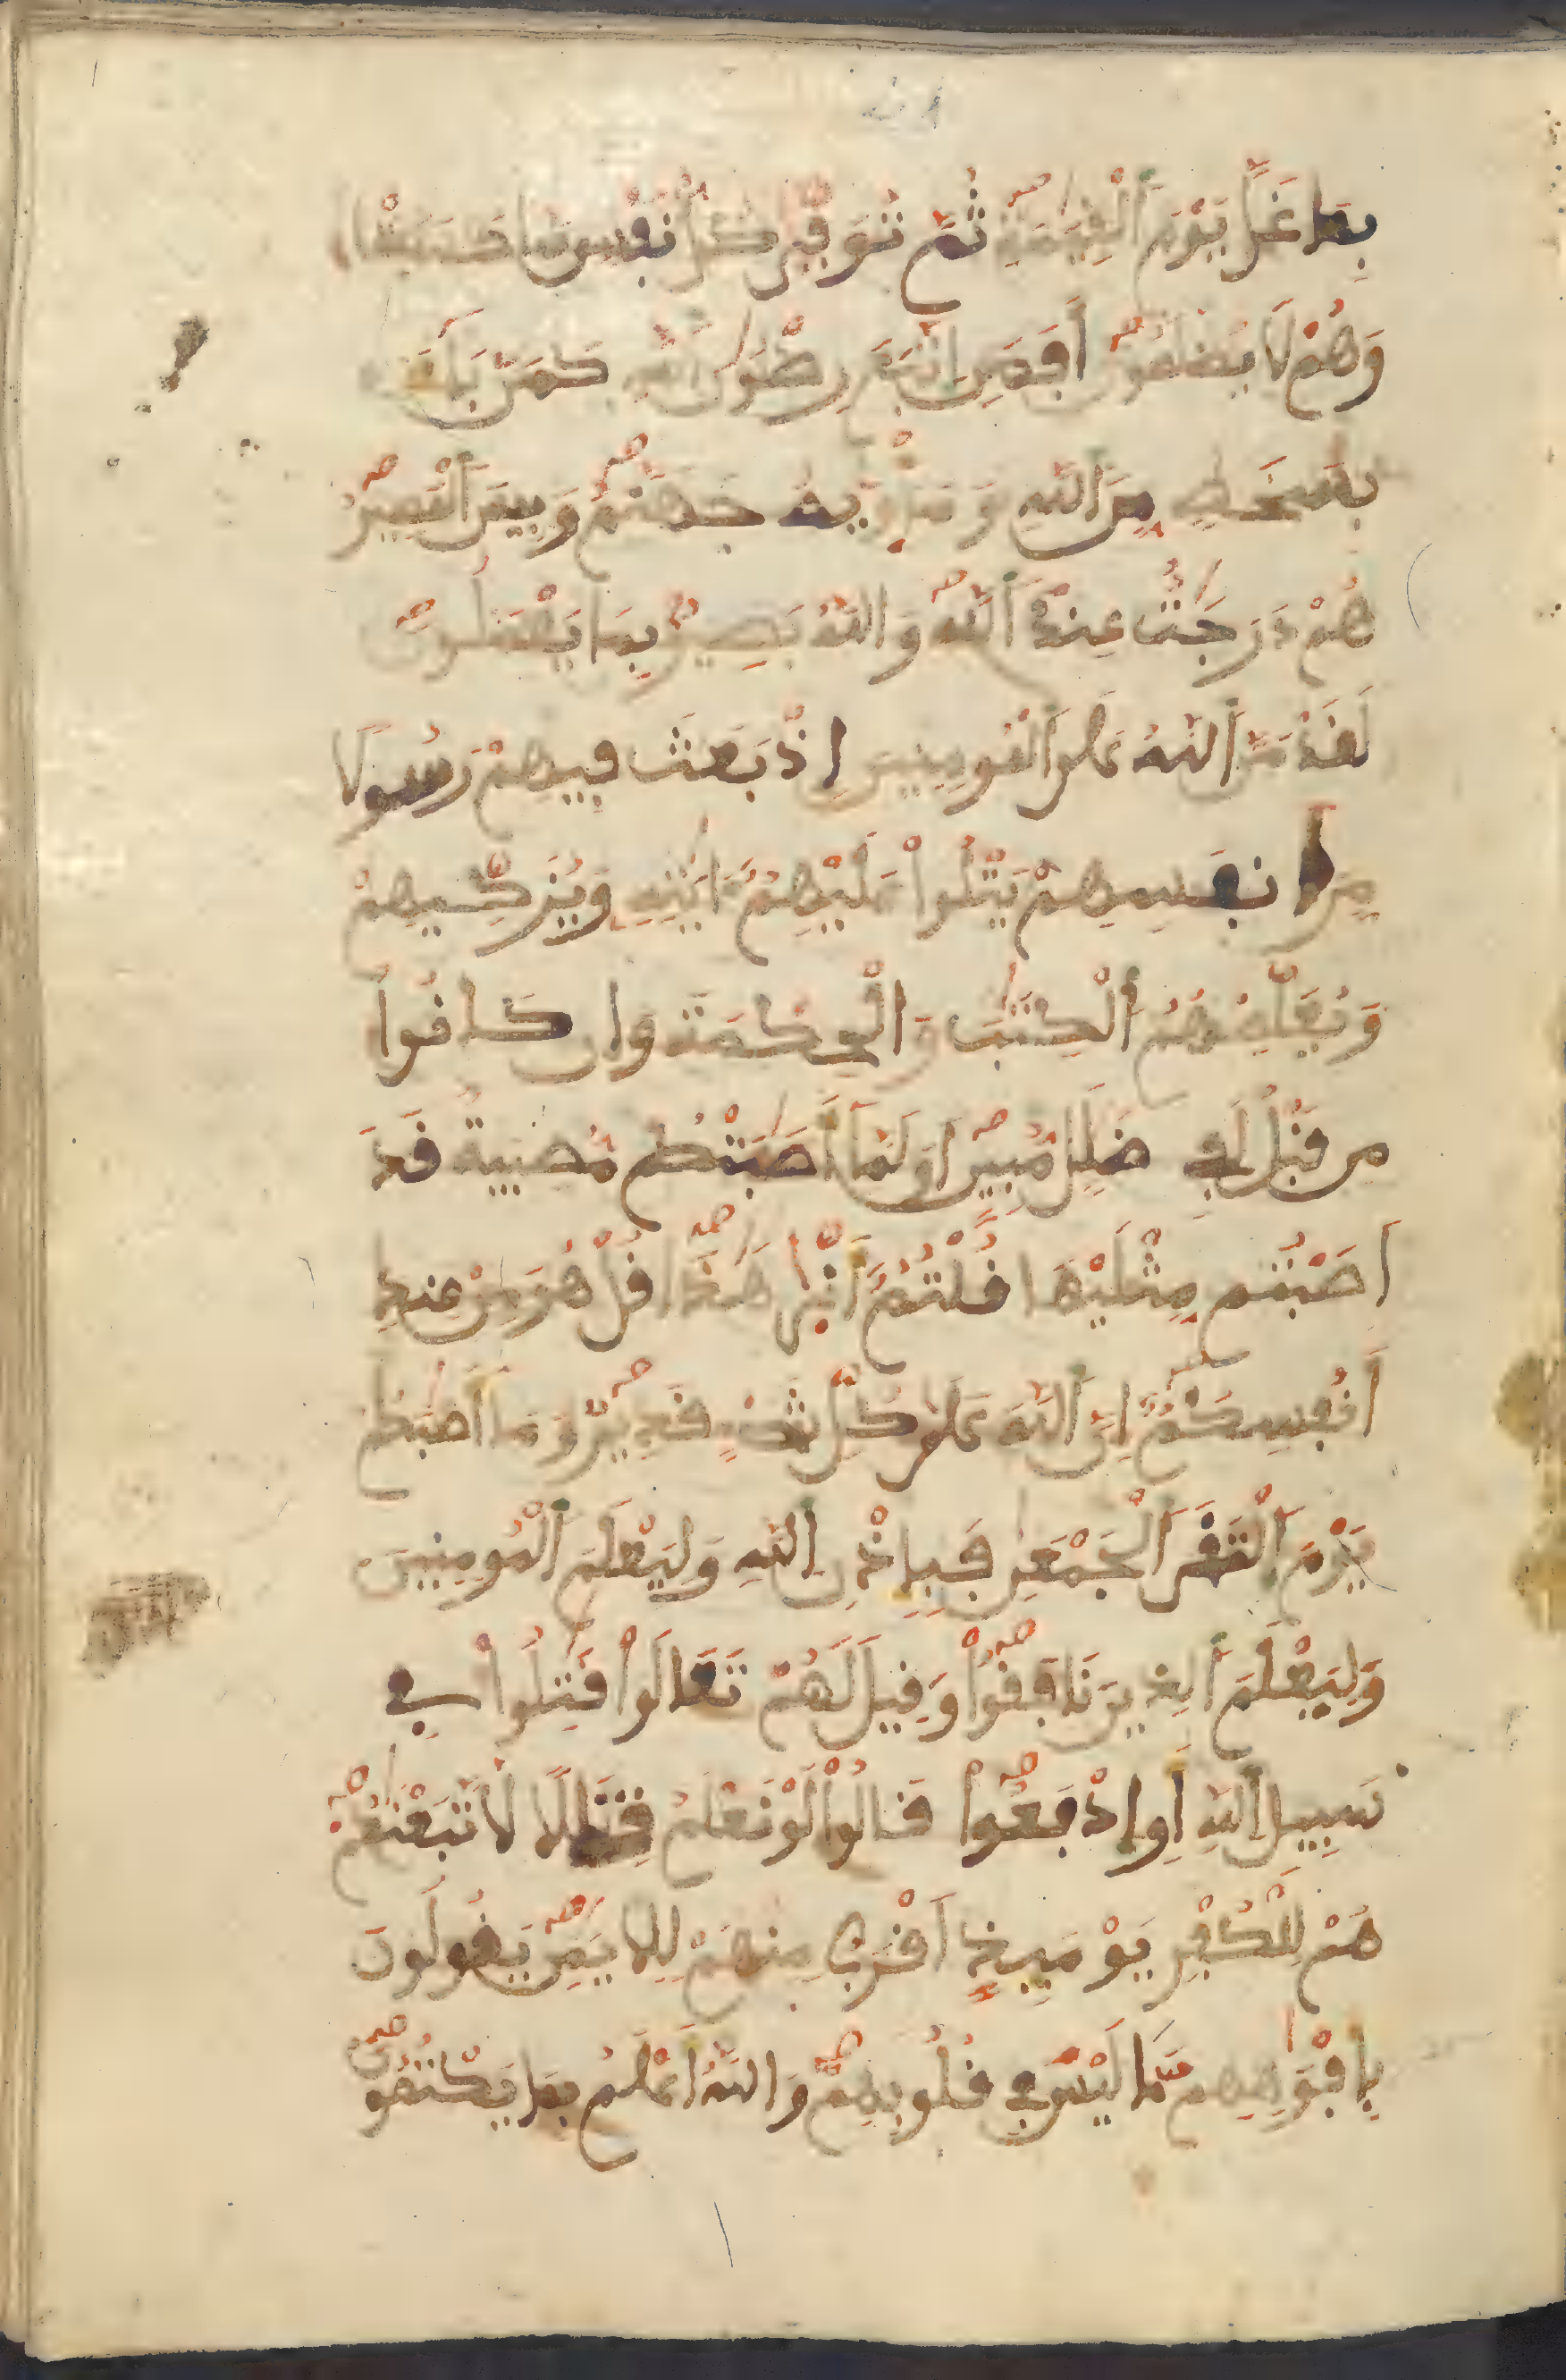 بِمَا غَلَّ يَوْمَ ٱلْقِيَٰمَةِ ثُمَّ تُوَفّ۪يٰ كُلُّ نَفْسٍ مَّا كَسَبَتْ
وَهُمْ لَا يُظْلَمُونَ أَفَمَنِ اِ۪تَّبَعَ رِضْوَٰنَ ٱللَّهِ كَمَنۢ بَآءَ
بِسَخَطٍ مِّنَ ٱللَّهِ وَمَأْو۪يٰهُ جَهَنَّمُ وَبِيسَ ٱلْمَصِيرُ
هُمْ دَرَجَٰتٌ عِندَ ٱللَّهِ وَاللَّهُ بَصِيرُۢ بِمَا يَعْمَلُونَ
لَقَدْ مَنَّ ٱللَّهُ عَلَى ٱلْمُومِنِينَ إِذْ بَعَثَ فِيهِمْ رَسُولًا
مِّنَ اَنفُسِهِمْ يَتْلُواْ عَلَيْهِمُۥٓ ءَايَٰتِهِۦ وَيُزَكِّيهِمْ
وَيُعَلِّمُهُمُ ٱلْكِتَٰبَ وَالْحِكْمَةَ وَإِن كَانُواْ
مِن قَبْلُ لَفِى ضَلَٰلٍ مُّبِينٍ اَوَلَمَّآ أَصَٰبَتْكُم مُّصِيبَةٌ قَدَ
اَصَبْتُم مِّثْلَيْهَا قُلْتُمُۥٓ أَنّ۪يٰ هَٰذَا قُلْ هُوَ مِنْ عِندِ
أَنفُسِكُمُۥٓ إِنَّ ٱللَّهَ عَلَىٰ كُلِّ شَىْءٍ قَدِيرٌ وَمَآ أَصَٰبَكُمْ
يَوْمَ ٱلْتَقَى ٱلْجَمْعَٰنِ فَبِإِذْنِ ٱللَّهِ وَلِيَعْلَمَ ٱلْمُومِنِينَ
وَلِيَعْلَمَ ٱلذِينَ نَافَقُواْ وَقِيلَ لَهُمْ تَعَالَوْاْ قَٰتِلُواْ فِى
سَبِيلِ ٱللَّهِ أَوِ اِدْفَعُواْ قَالُواْ لَوْ نَعْلَمُ قِتَالًا لَّاتَّبَعْنَٰكُمْ
هُمْ لِلْكُفْرِ يَوْمَئِذٍ اَقْرَبُ مِنْهُمْ لِلِايمَٰنِ يَقُولُونَ
بِأَفْوَٰهِهِم مَّا لَيْسَ فِى قُلُوبِهِمْ وَاللَّهُ أَعْلَمُ بِمَا يَكْتُمُونَ